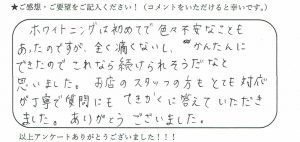 ★ご感想・ご要望をご記入ください！（コメントをいただけると幸いです。）
ホワイトニングは初めてで色々不安なことも
あったのですが、全く痛くないし、かんたんに
できたのでこれなら続けられそうだなと
思いました。お店のスタッフの方もとても対応
が丁寧で質問にもてきかくに答えていただき
ました。ありがとうございました。
以上アンケートありがとうございました！！！